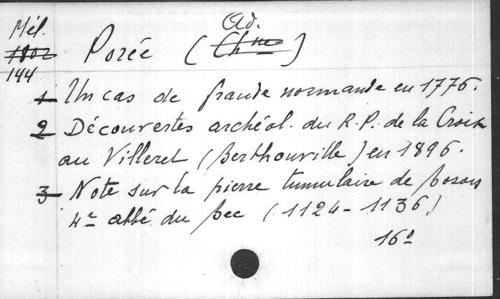 Mél.
1802
144
Porée (Chne) Ad.
1 Un cas de fraude normande en 1776.
2 Découvertes archéol. du R.P. de la Croix
au Villeret (Berthouville) en 1896.
3 Note sur la pierre tumulaire de Boson
4e abbé du Bec (1124-1136)
16°